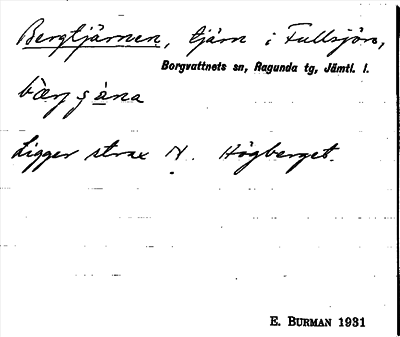 Bergtjärnen, tjärn i Fullsjön,
Borgvattnets sn, Ragunda tg, Jämtl. l.
Ligger strax N. Högberget.
E. BURMAN 1931